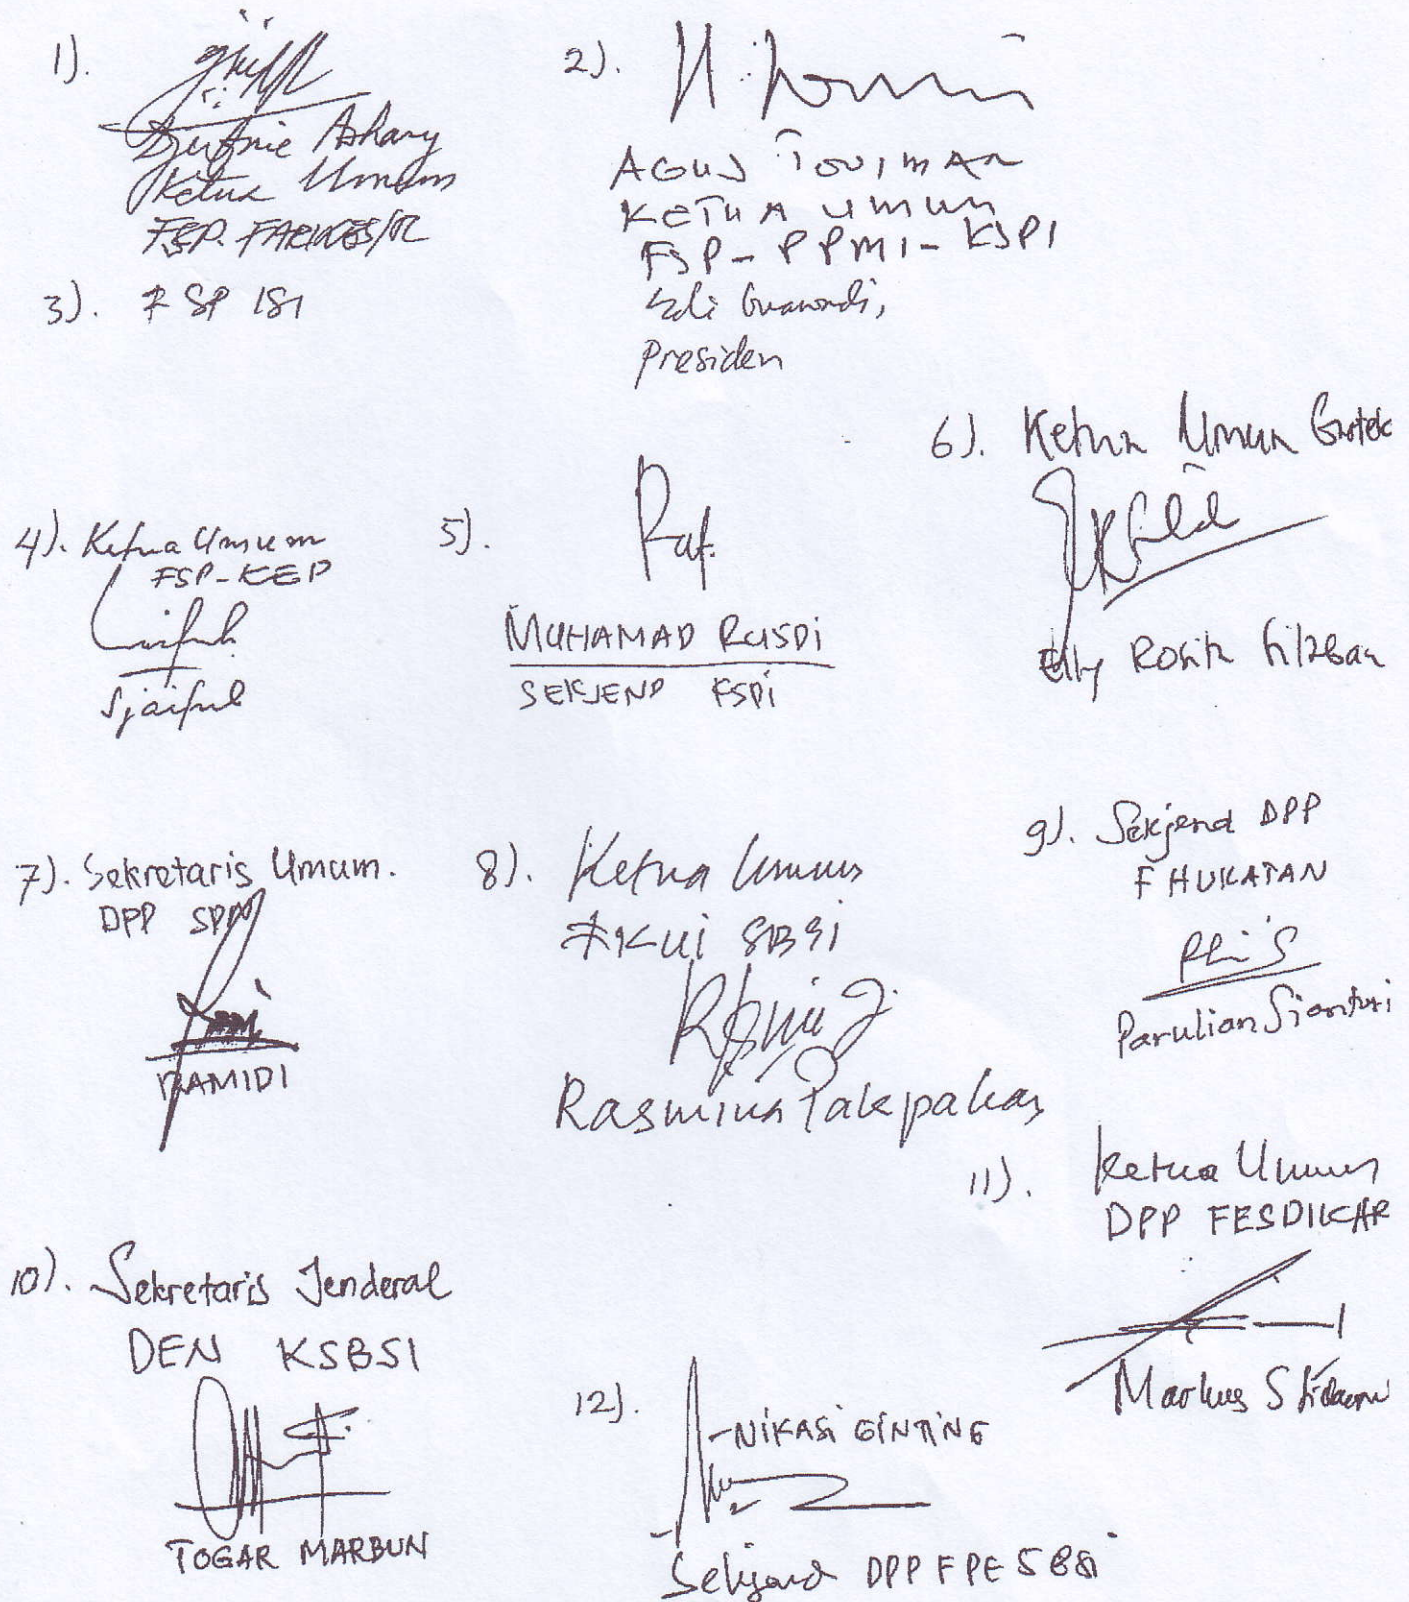 1).
Ashary
Ketua Umum
FSP. FARKES/R
2).
AGUS TOUIMAN
KETUA UMUM
FSP-PPMI-KSPI
3). FSP ISI
Presiden
4). Ketua Umum
FSP-KEP
Sjaiful
5).
MUHAMAD RUSDI
SEKJEND KSPI
6). Ketua Umum Garteks
Elly Rosita Silaban
7). Sekretaris Umum.
DPP
RAMIDI
8). Ketua Umum
FKUI SBSI
Rasmina Pakpahan
9). Sekjend DPP
F HUKATAN
Parulian Sianturi
10). Sekretaris Jenderal
DEN KSBSI
TOGAR MARBUN
11). Ketua Umum
DPP FESDIKAR
Markus S
12).
NIKASI GINTING
Sekjend DPP FPE SBSI